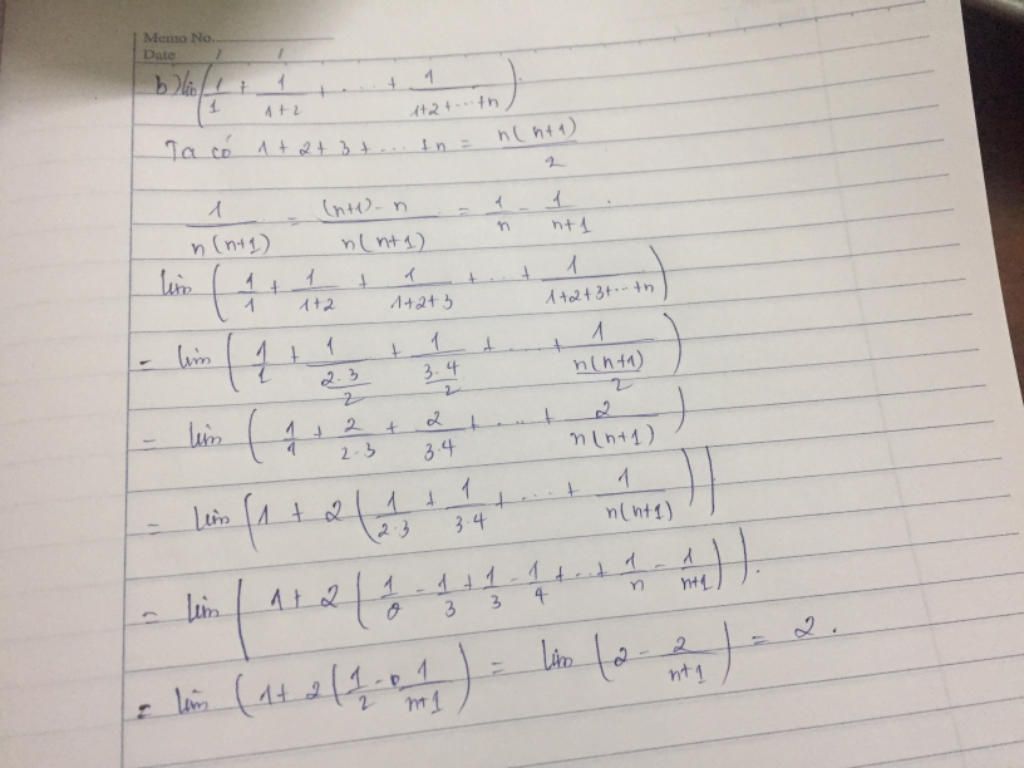 Memo No.
Date / /
b) lim(1/1 + 1/(1+2) + .... + 1/(1+2+...+n)).
Ta có 1+2+3+...+n = n(n+1)/2
1/(n(n+1)) = ((n+1)-n)/(n(n+1)) = 1/n - 1/(n+1).
lim (1/1 + 1/(1+2) + 1/(1+2+3) + ... + 1/(1+2+3+...+n))
= lim (1/1 + 1/(2.3/2) + 1/(3.4/2) + ... + 1/(n(n+1)/2))
= lim (1/1 + 2/(2.3) + 2/(3.4) + ... + 2/(n(n+1)))
= lim (1 + 2(1/(2.3) + 1/(3.4) + ... + 1/(n(n+1))))
= lim (1+2( - 1/3 + 1/3 - 1/4 + ... + 1/n - 1/(n+1))).
= lim (1+2(1/2 - 1/(n+1)) = lim (2 - 2/(n+1)) = 2.